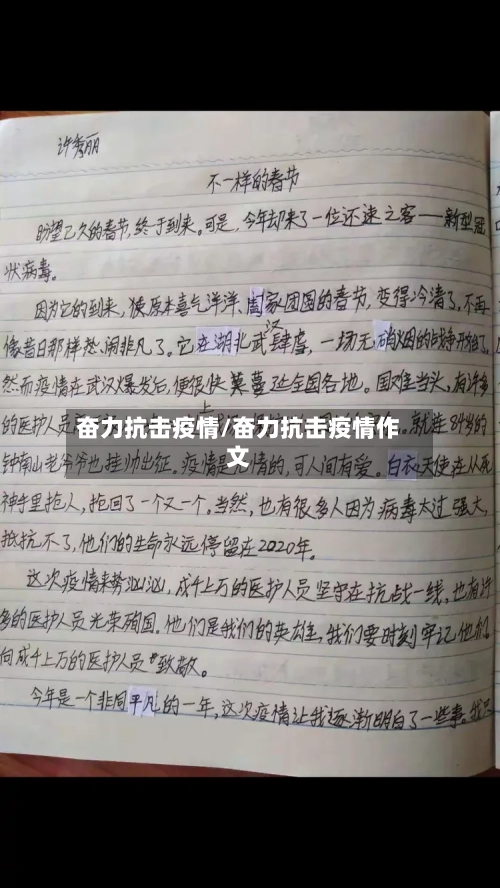 许秀丽
不一样的春节
盼望已久的春节,终于到来。可是,今年却来了一位不速之客——新型冠
状病毒。
因为它的到来,使原本喜气洋洋、阖家团圆的春节,变得冷清了,不再
像昔日那样热闹非凡了。它在湖北武汉肆虐,一场无硝烟的战争开始了。
然而疫情在武汉爆发后,便很快蔓延全国各地。国难当头,有许多
的医护人员
就连84岁的
奋力抗击疫情/奋力抗击疫情作
文
钟南山老爷爷也挂帅出征。疫情是无情的,可人间有爱。白衣天使在从死
神手里抢人,抢回了一个又一个。当然,也有很多人因为病毒太过强大,
抵抗不了,他们的生命永远停留在2020年。
这次疫情来势汹汹,成千上万的医护人员坚守在抗战一线,也有许
多的医护人员光荣殉国。他们是我们的英雄,我们要时刻牢记他们,
向成千上万的医护人员致敬。
今年是一个非同平凡的一年,这次疫情让我逐渐明白了一些事。我